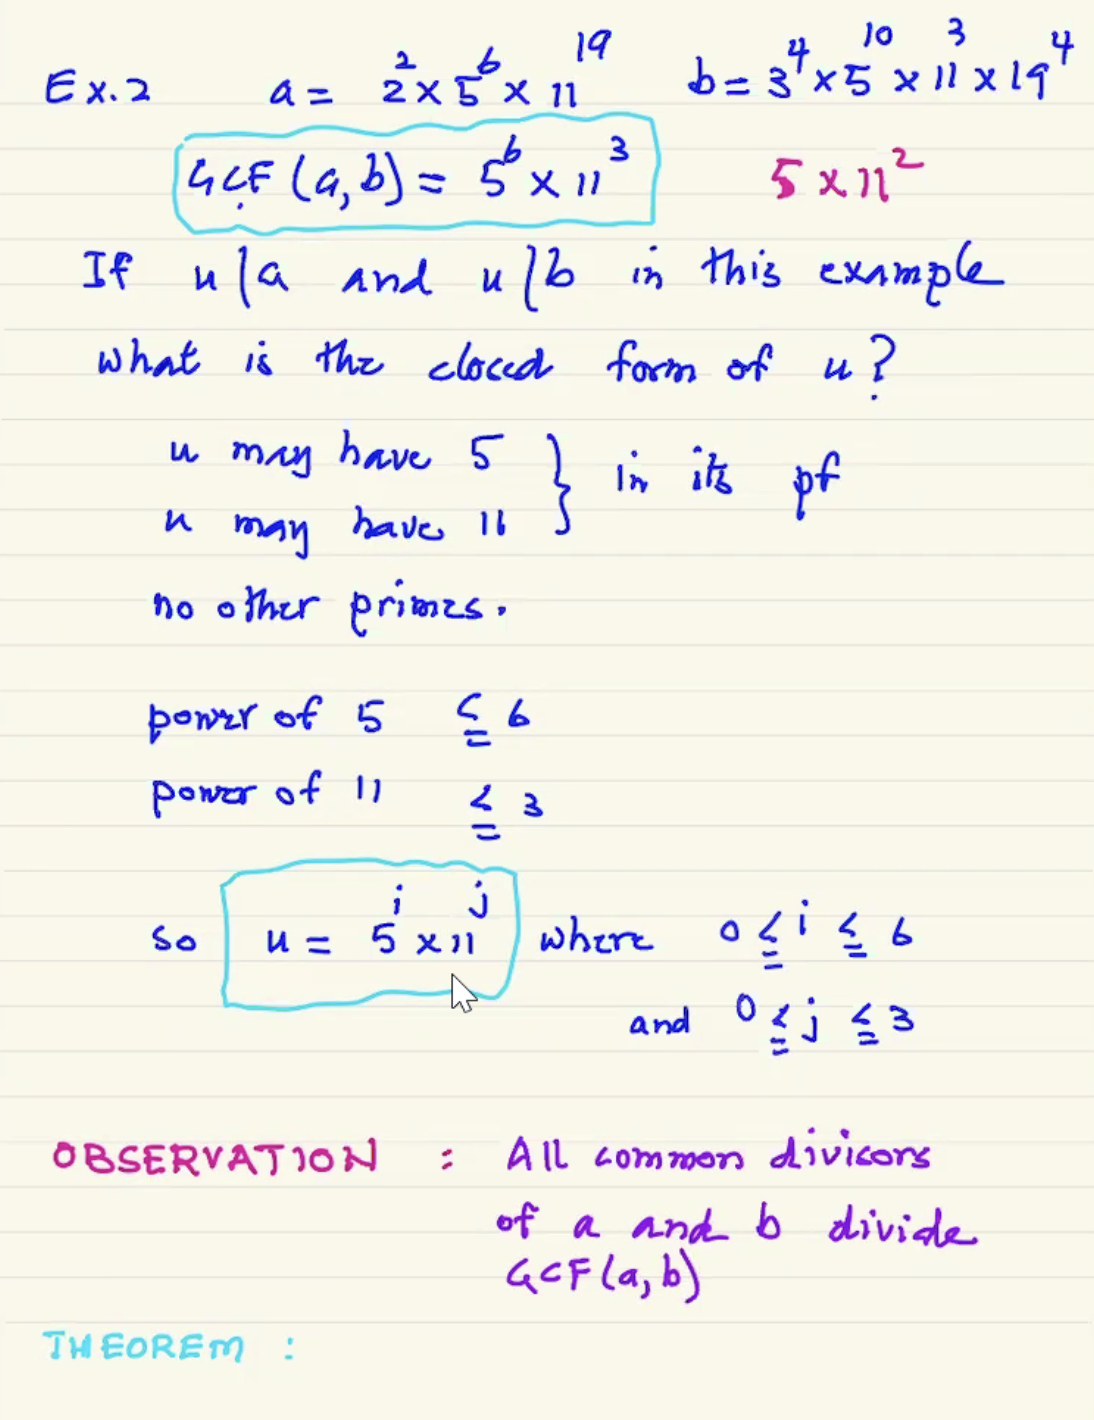 Ex. 2 a = 2² × 5⁶ × 11¹⁹ b = 3⁴ × 5¹⁰ × 11³ × 19⁴
GCF (a, b) = 5⁶ × 11³ 5 × 11²
If u | a and u | b in this example
what is the closed form of u?
u may have 5 } in its pf
u may have 11
no other primes.
power of 5 ≤ 6
power of 11 ≤ 3
so u = 5ⁱ × 11ʲ where 0 ≤ i ≤ 6
and 0 ≤ j ≤ 3
OBSERVATION : All common divisors
of a and b divide
GCF (a, b)
THEOREM :